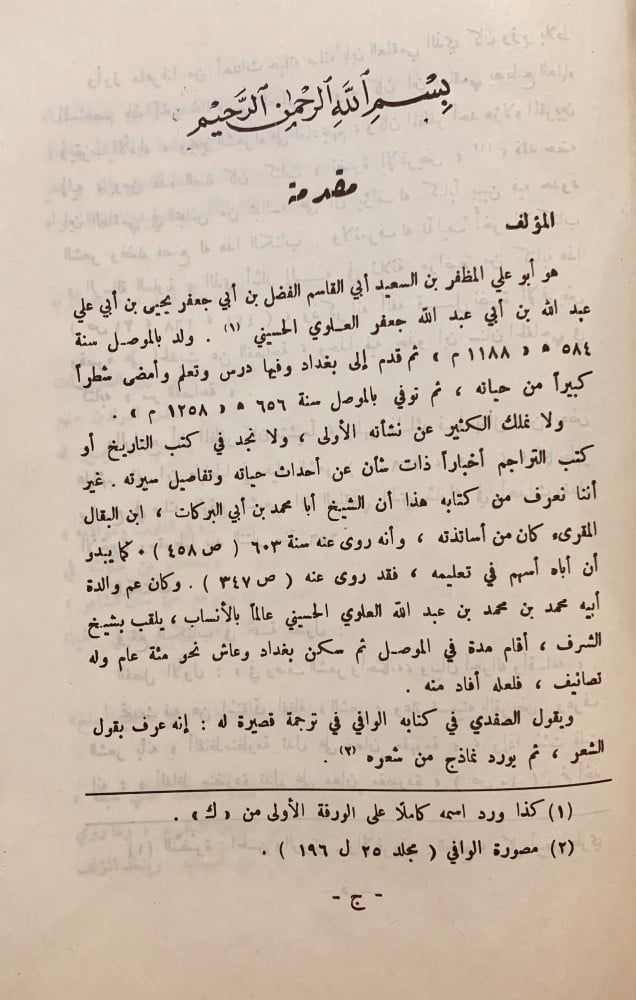 بِسْمِ اللَّهِ الرَّحْمٰنِ الرَّحِيْمِ
مقدمة
المؤلف
هو أبو علي المظفر بن السعيد أبي القاسم الفضل بن أبي جعفر يحيى بن أبي علي
عبد الله بن أبي عبد الله جعفر العلوي الحسيني (١) . ولد بالموصل سنة
٥٨٤ ه « ١١٨٨ م » ثم قدم إلى بغداد وفيها درس وتعلم وأمضى شطراً
كبيراً من حياته ، ثم توفي بالموصل سنة ٦٥٦ ه « ١٢٥٨ م » .
ولا نملك الكثير عن نشأته الأولى ، ولا نجد في كتب التاريخ أو
كتب التراجم أخباراً ذات شأن عن أحداث حياته وتفاصيل سيرته . غير
أننا نعرف من كتابه هذا أن الشيخ أبا محمد بن أبي البركات ، ابن البقال
المقرىء كان من أساتذته ، وأنه روى عنه سنة ٦٠٣ ( ص ٤٥٨ ) . كما يبدو
أن أباه أسهم في تعليمه ، فقد روى عنه ( ص ٣٤٧ ) . وكان عم والدة
أبيه محمد بن محمد بن عبد الله العلوي الحسيني عالماً بالأنساب ، يلقب بشيخ
الشرف ، أقام مدة في الموصل ثم سكن بغداد وعاش نحو مئة عام وله
تصانيف ، فلعله أفاد منه .
ويقول الصفدي في كتابه الوافي في ترجمة قصيرة له : إنه عرف بقول
الشعر ، ثم يورد نماذج من شعره (٢) .
(١) كذا ورد اسمه كاملًا على الورقة الأولى من « ك » .
(٢) مصورة الوافي ( مجلد ٢٥ ل ١٩٦ ) .
- ج -